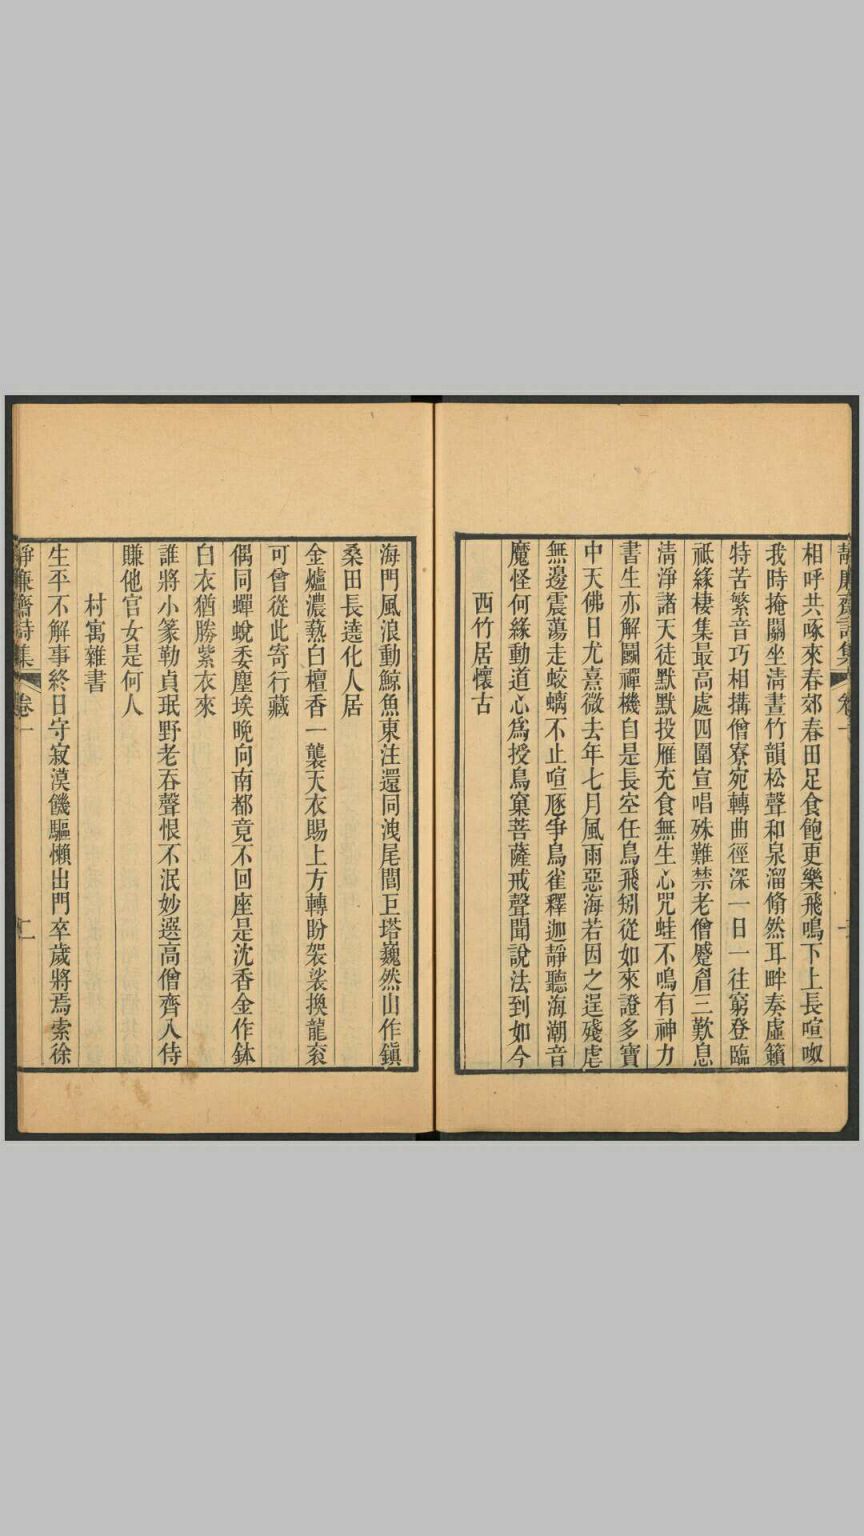 相呼共啄來春郊春田足食飽更樂飛鳴下上長喧呶
我時掩關坐清晝竹韻松聲和泉溜翛然耳畔奏虛籟
特苦繁音巧相搆僧寮宛轉曲徑深一日一往窮登臨
祗緣棲集最高處四圍宣唱殊難禁老僧蹙眉三歎息
清淨諸天徒默默投雁充食無生心咒蛙不鳴有神力
書生亦解鬭禪機自是長空任鳥飛矧從如來證多寶
中天佛日尤熹微去年七月風雨惡海若因之逞殘虐
無邊震蕩走蛟螭不止喧豗爭鳥雀釋迦靜聽海潮音
魔怪何緣動道心爲授鳥窠菩薩戒聲聞說法到如今
西竹居懷古
海門風浪動鯨魚東注還同洩尾閭巨塔巍然山作鎮
桑田長遶化人居
金爐濃爇白檀香一襲天衣賜上方轉盼袈裟換龍袞
可曾從此寄行藏
偶同蟬蛻委塵埃晚向南都竟不回座是沈香金作鉢
白衣猶勝紫衣來
誰將小篆勒貞珉野老吞聲恨不泯妙選高僧齊入侍
賺他官女是何人
村寓雜書
生平不解事終日守寂漠饑驅懶出門卒歲將焉索徐
靜廉齋詩集 卷一 二